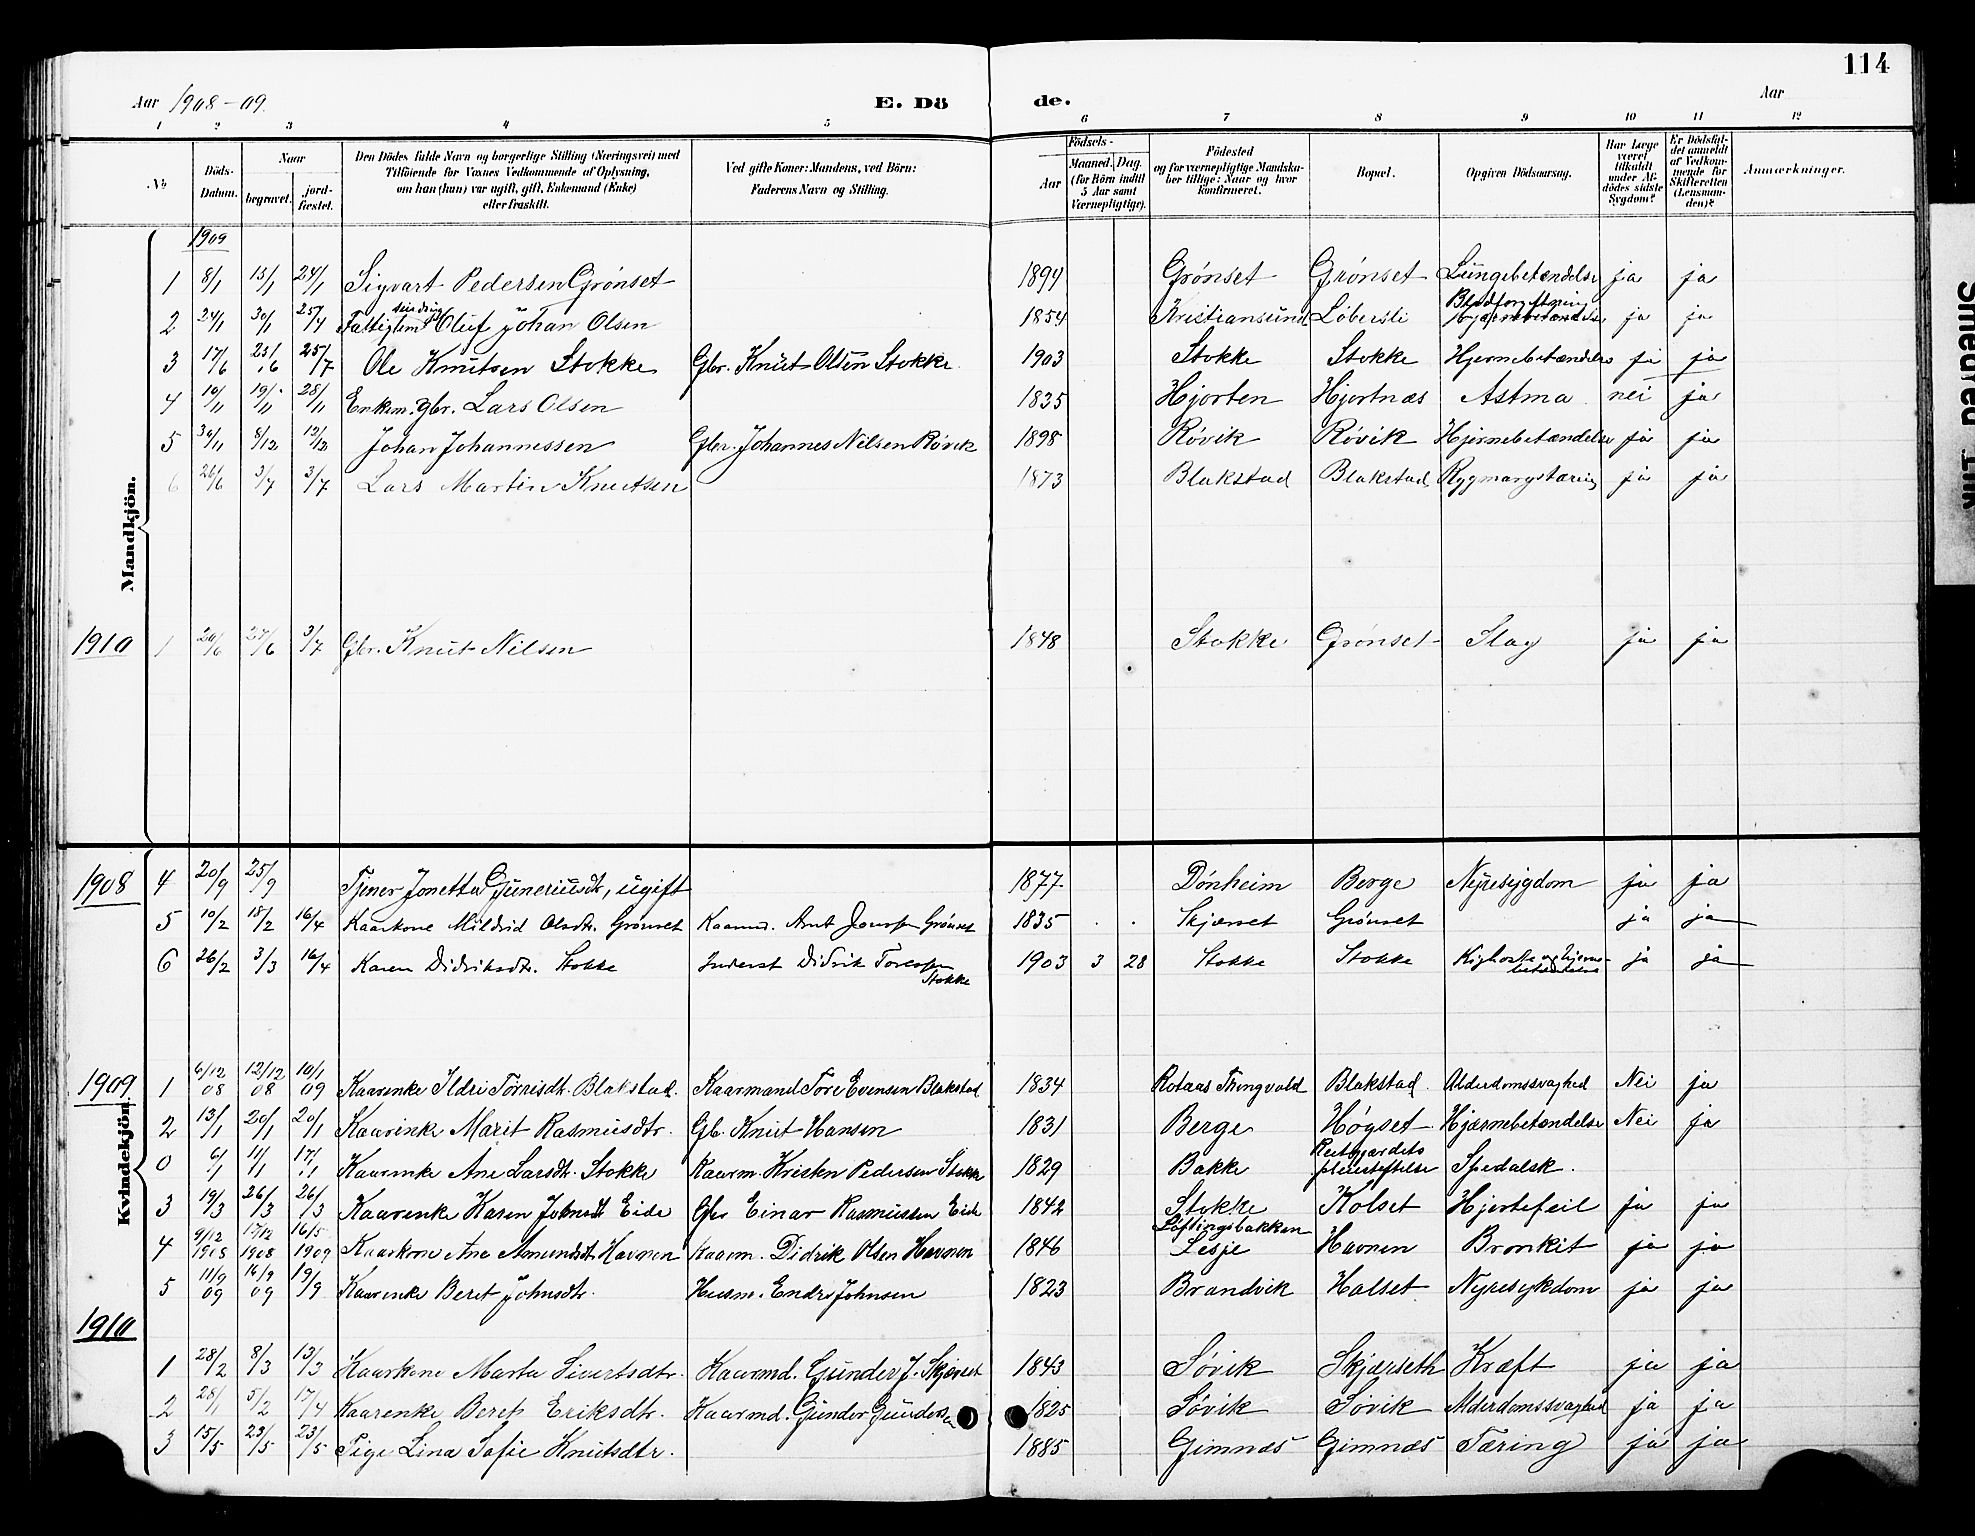 114
Aar 1908-09. E. Dö de. Aar
1 2 3 4 5 6 7 8 9 10 11 12
No. Döds-Datum. Naar begravet. jord-fæstet. Den Dödes fulde Navn og borgerlige Stilling (Næringsvei) med Tilföiende for Voxnes Vedkommende af Oplysning, om han (hun) var ugift, gift, Enkemand (Enke) eller fraskilt. Ved gifte Koner: Mandens, ved Börn: Faderens Navn og Stilling. Födsels- Aar Maaned. Dag. (for Börn indtil 5 Aar samt Værnepligtige). Födested og for værnepligtige Mandskaber tillige: Naar og hvor konfirmeret. Bopæl. Opgiven Dödsaarsag. Har Læge været tilkaldt under Afdödes sidste Sygdom? Er Dödsfaldet anmeldt af Vedkommende for Skifteretten (Lensmanden)? Anmærkninger.
Mandkjön.
1909
1 8/1 13/1 24/1 Sigvart Pedersen Grönset 1894 Grönset Grönset Lungebetændelse ja ja
2 24/1 30/1 25/4 Fattiglem Oluf Johan Olsen 1854 Kristiansund Löbersli Blodforgiftning ja ja
3 17/6 23/6 25/7 Ole Knutsen Stokke Gbr. Knut Olsen Stokke 1903 Stokke Stokke Hjernebetændelse ja ja
4 10/11 19/11 28/11 Enkem. gbr. Lars Olsen 1835 Hjorten Hjortnæs Astma nei ja
5 30/11 8/12 12/12 Johan Johannessen Gbr. Johannes Nilsen Rövik 1898 Rövik Rövik Hjernebetændelse ja ja
6 26/6 3/7 3/7 Lars Martin Knutsen 1873 Blakstad Blakstad Rygmargstæring ja ja
1910 1 20/6 27/6 3/7 Gbr. Knut Nilsen 1848 Stokke Grönset Slag ja ja
Kvindekjön.
1908 4 20/9 25/9 Tjener Jonetta Guneriusdt, ugift 1877 Dönheim Berge Nyresygdom ja ja
5 10/2 18/2 16/4 Kaarkone Mildrid Olsdtr. Grönset Kaarmd. Arnt Jonsen Grönset 1835 . . Skjærset Grönset ja ja
6 26/2 3/3 16/4 Karen Didriksdtr. Stokke Inderst Didrik Toresen Stokke 1903 3 28 Stokke Stokke Kighoste og hjernebetændelse ja ja
1909 1 6/12 08 12/12 08 10/1 09 Kaarenke Ildri Torrisdt. Blakstad. Kaarmand Tore Evensen Blakstad 1834 Rotaas Thingvold Blakstad. Alderdomssvaghed Nei ja
2 13/1 20/1 20/1 Kaarinke Marit Rasmusdtr. Gb. Knut Hansen 1831 Berge Högset Hjærnebetændelse Nei ja
0 6/1 11/1 17/1 Kaarinke Ane Larsdt. Stokke Kaarm. Kristen Pedersen Stokke 1829 Bakke Reitgjærdets pleiestiftelse Spedalsk.
3 19/3 26/3 26/3 Kaarenke Karen Johnsdt Eide Gbr Einar Rasmussen Eide 1842 Stokke Kolset Hjertefeil ja ja
4 9/12 1908 17/12 1908 16/5 1909 Kaarkone Ane Amundsdt. Havnen Kaarm. Didrik Olsen Havnen 1846 Löftingsbakken Lesje Havnen Bronkit ja ja
5 11/9 09 16/9 09 19/9 Kaarenke Beret Johnsdtr. Husm. Endre Johnsen 1823 Brandvik Halset Nyresykdom ja ja
1910
1 28/2 8/3 13/3 Kaarkone Marta Sivertsdtr. Kaarmd. Gunder J. Skjærset 1843 Sövik Skjærseth Kræft ja ja
2 28/1 5/2 17/4 Kaarenke Beret Eriksdtr. Kaarmd. Gunder Gundersen 1825 Sövik Sövik Alderdomssvaghed ja ja
3 15/5 23/5 23/5 Pige Lina Sofie Knutsdtr. 1885 Gimnæs Gimnæs Tæring ja ja